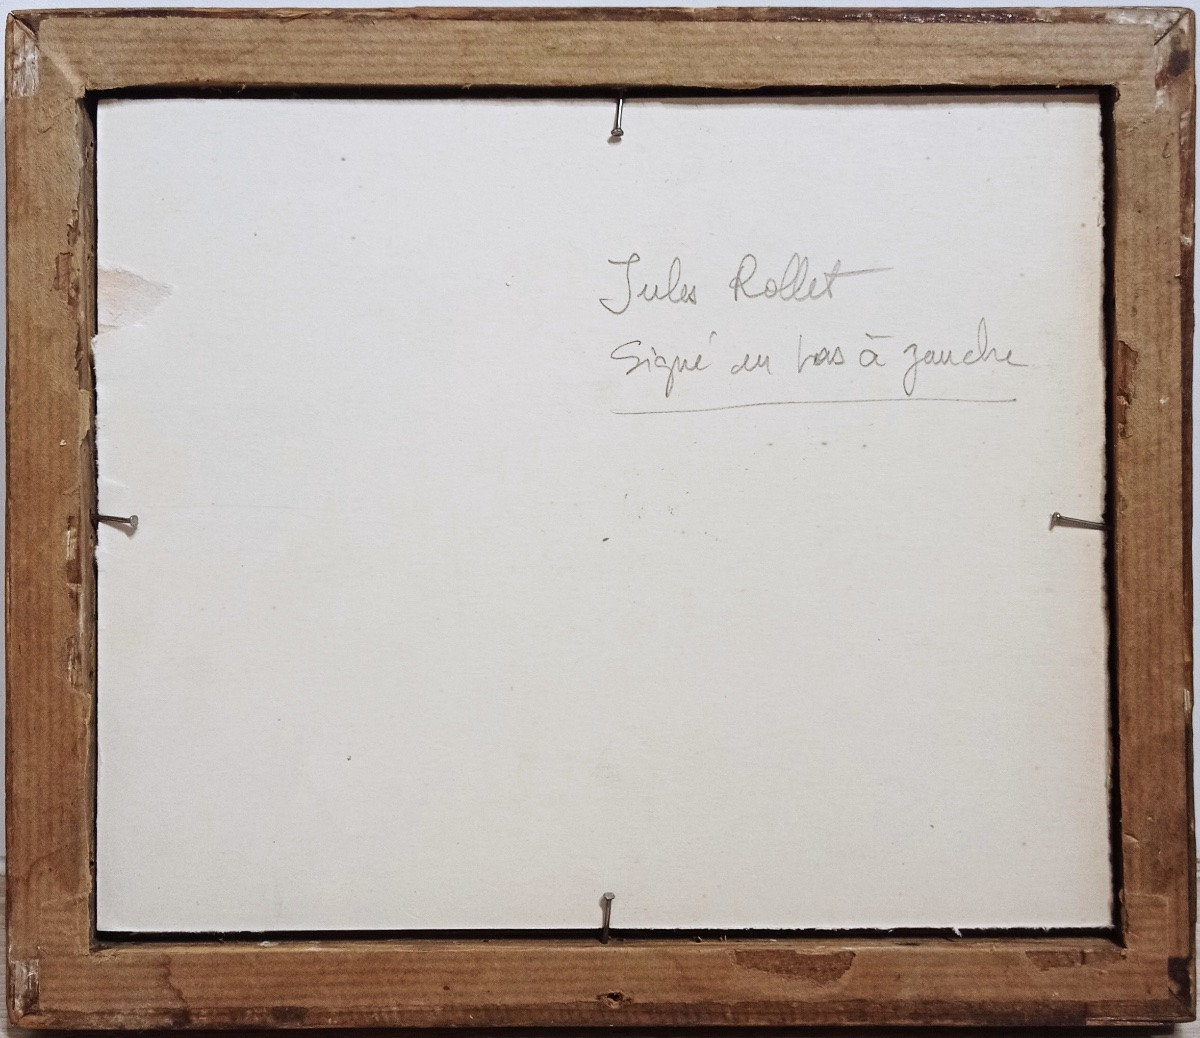 Jules Rollet
Signé en bas à gauche